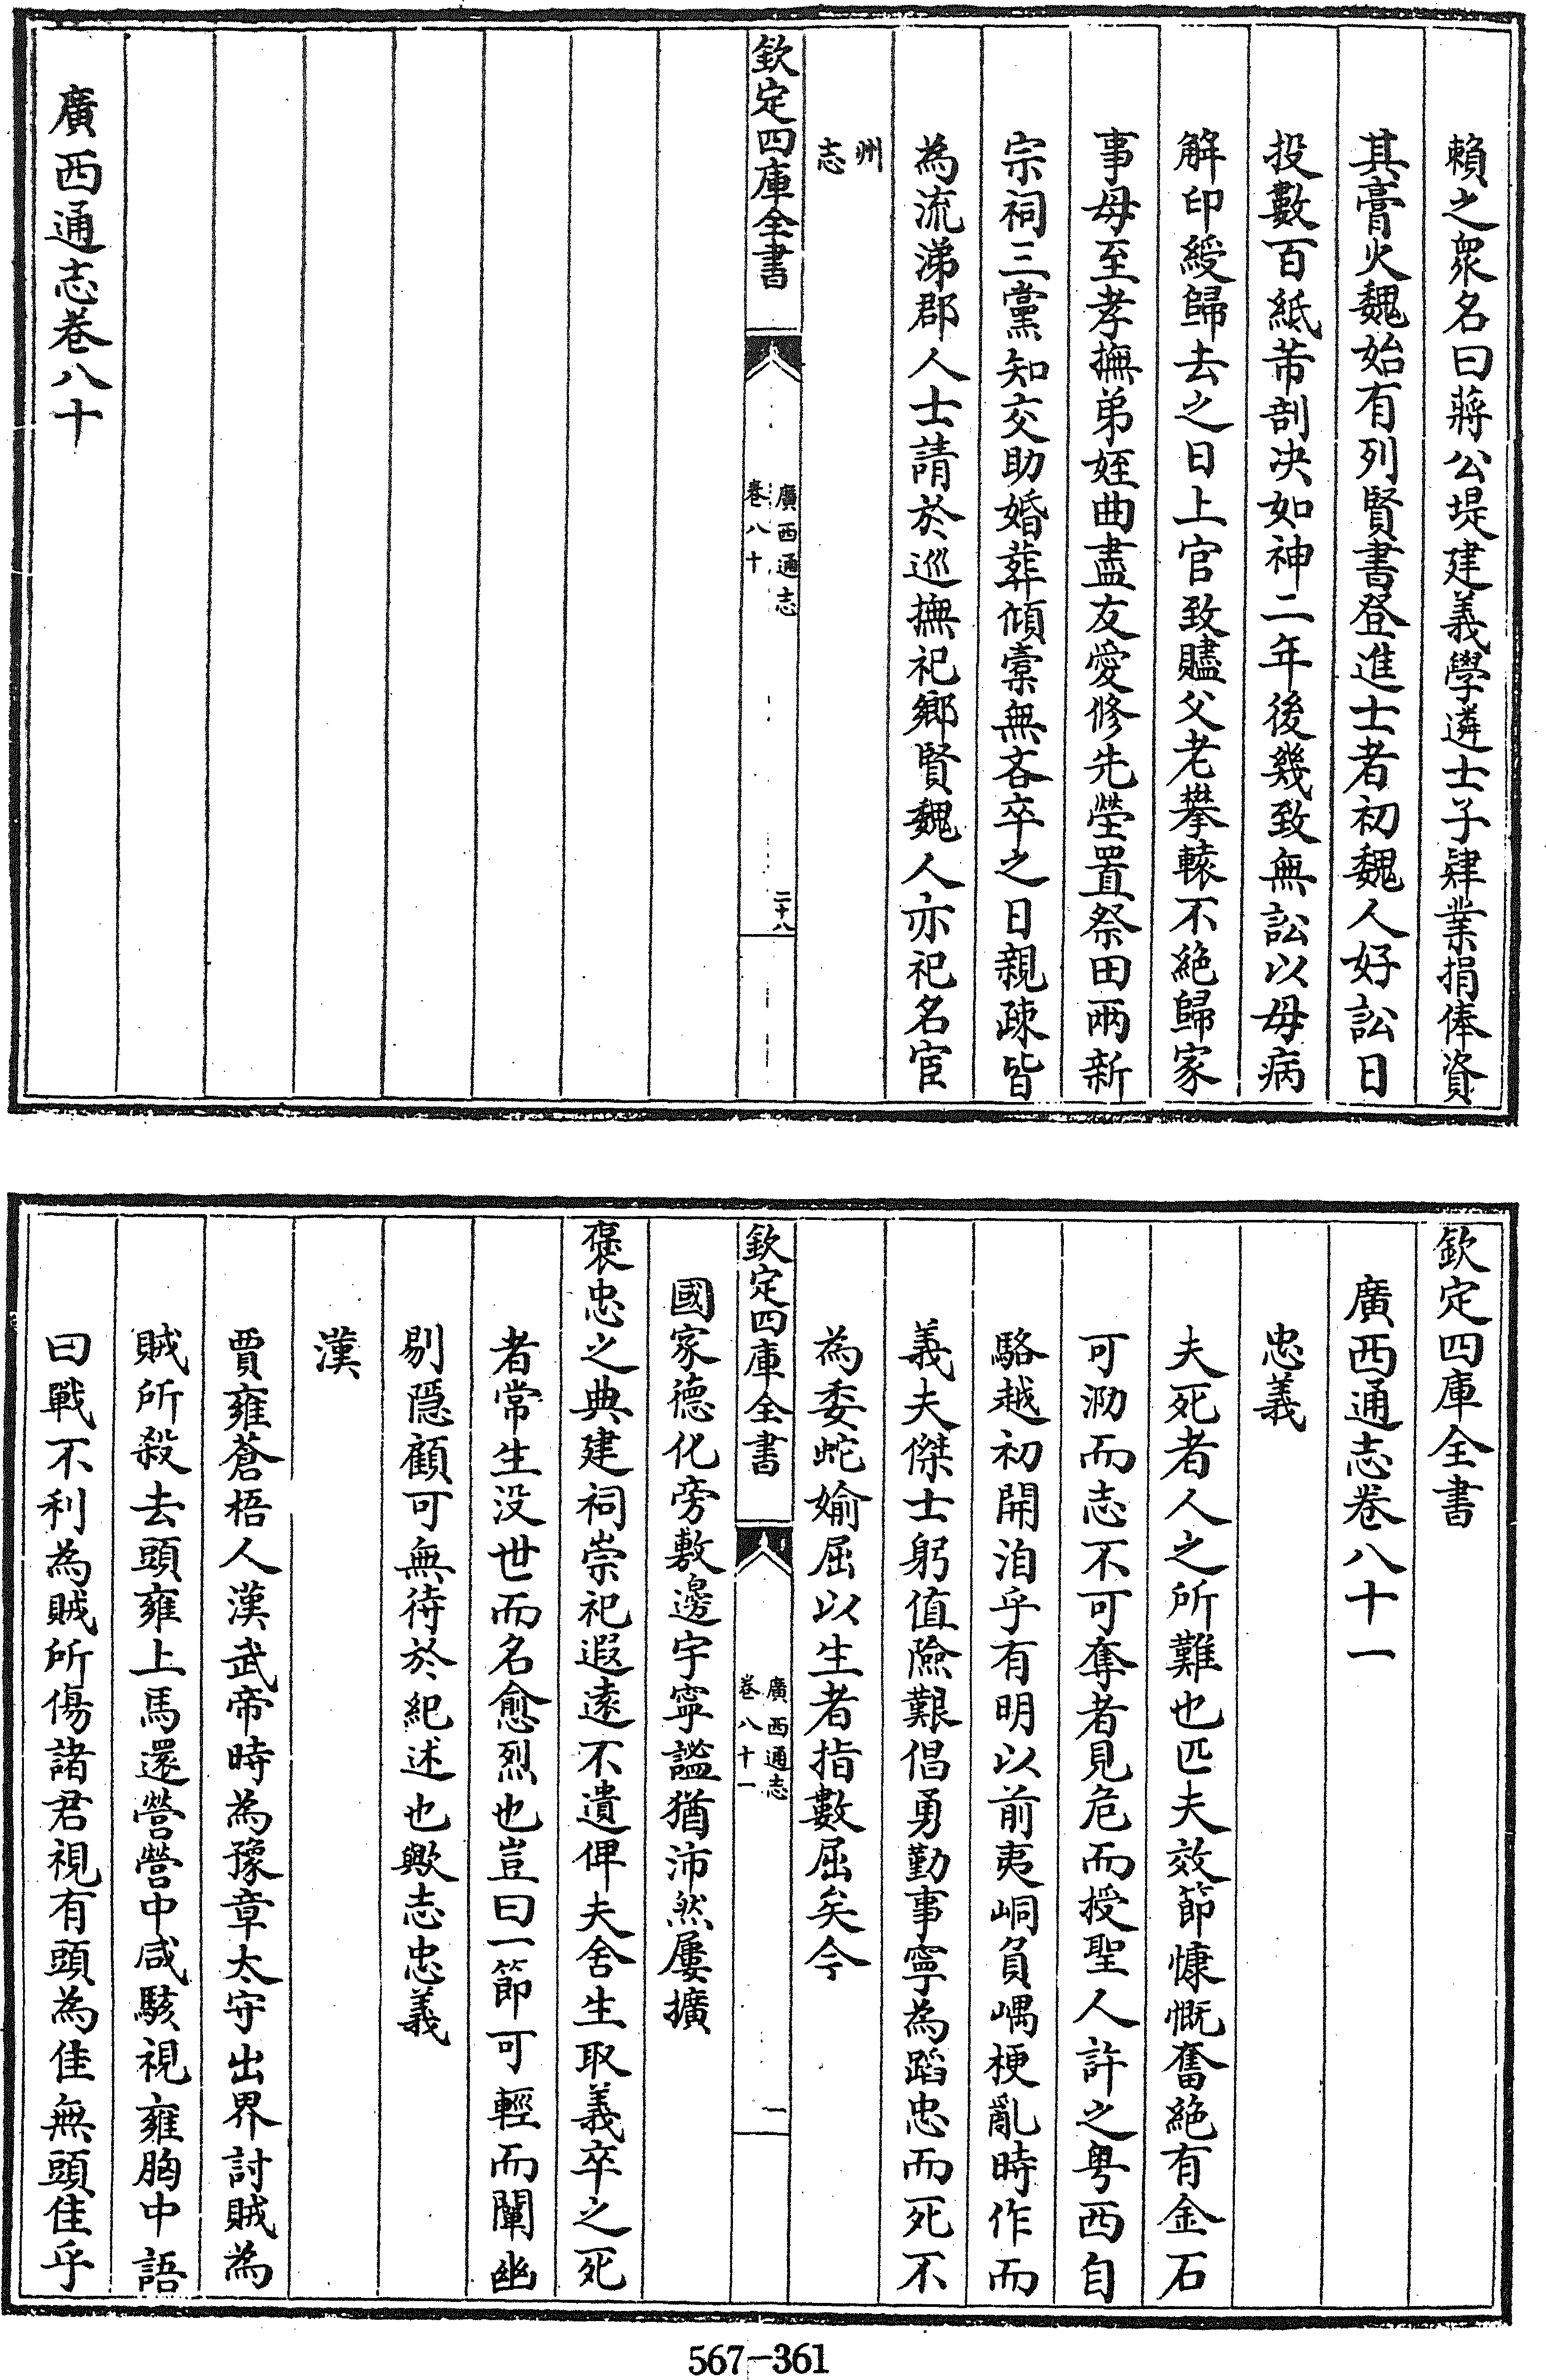 賴之衆名曰蔣公堤建義學遴士子肄業捐俸資
其膏火魏始有列賢書登進士者初魏人好訟日
投數百紙芾剖决如神二年後幾致無訟以母病
解印綬歸去之日上官致贐父老攀轅不絶歸家
事母至孝撫弟姪曲盡友愛修先塋置祭田兩新
宗祠三黨知交助婚葬傾橐無吝卒之日親疎皆
為流涕郡人士請於巡撫祀鄉賢魏人亦祀名宦
州
志
欽定四庫全書
廣西通志
卷八十
二十八
廣西通志卷八十
欽定四庫全書
廣西通志卷八十一
忠義
夫死者人之所難也匹夫效節慷慨奮絶有金石
可泐而志不可奪者見危而授聖人許之粤西自
駱越初開洎乎有明以前夷峒負嵎梗亂時作而
義夫傑士躬值險艱倡勇勤事寧為蹈忠而死不
為委蛇媮屈以生者指數屈矣今
欽定四庫全書
廣西通志
卷八十一
一
國家德化旁敷邊宇寧謐猶沛然屢擴
褒忠之典建祠崇祀遐遠不遺俾夫舍生取義卒之死
者常生没世而名愈烈也豈曰一節可輕而闡幽
剔隱顧可無待於紀述也歟志忠義
漢
賈雍蒼梧人漢武帝時為豫章太守出界討賊為
賊所殺去頭雍上馬還營營中咸駭視雍胸中語
曰戰不利為賊所傷諸君視有頭為佳無頭佳乎
567-361